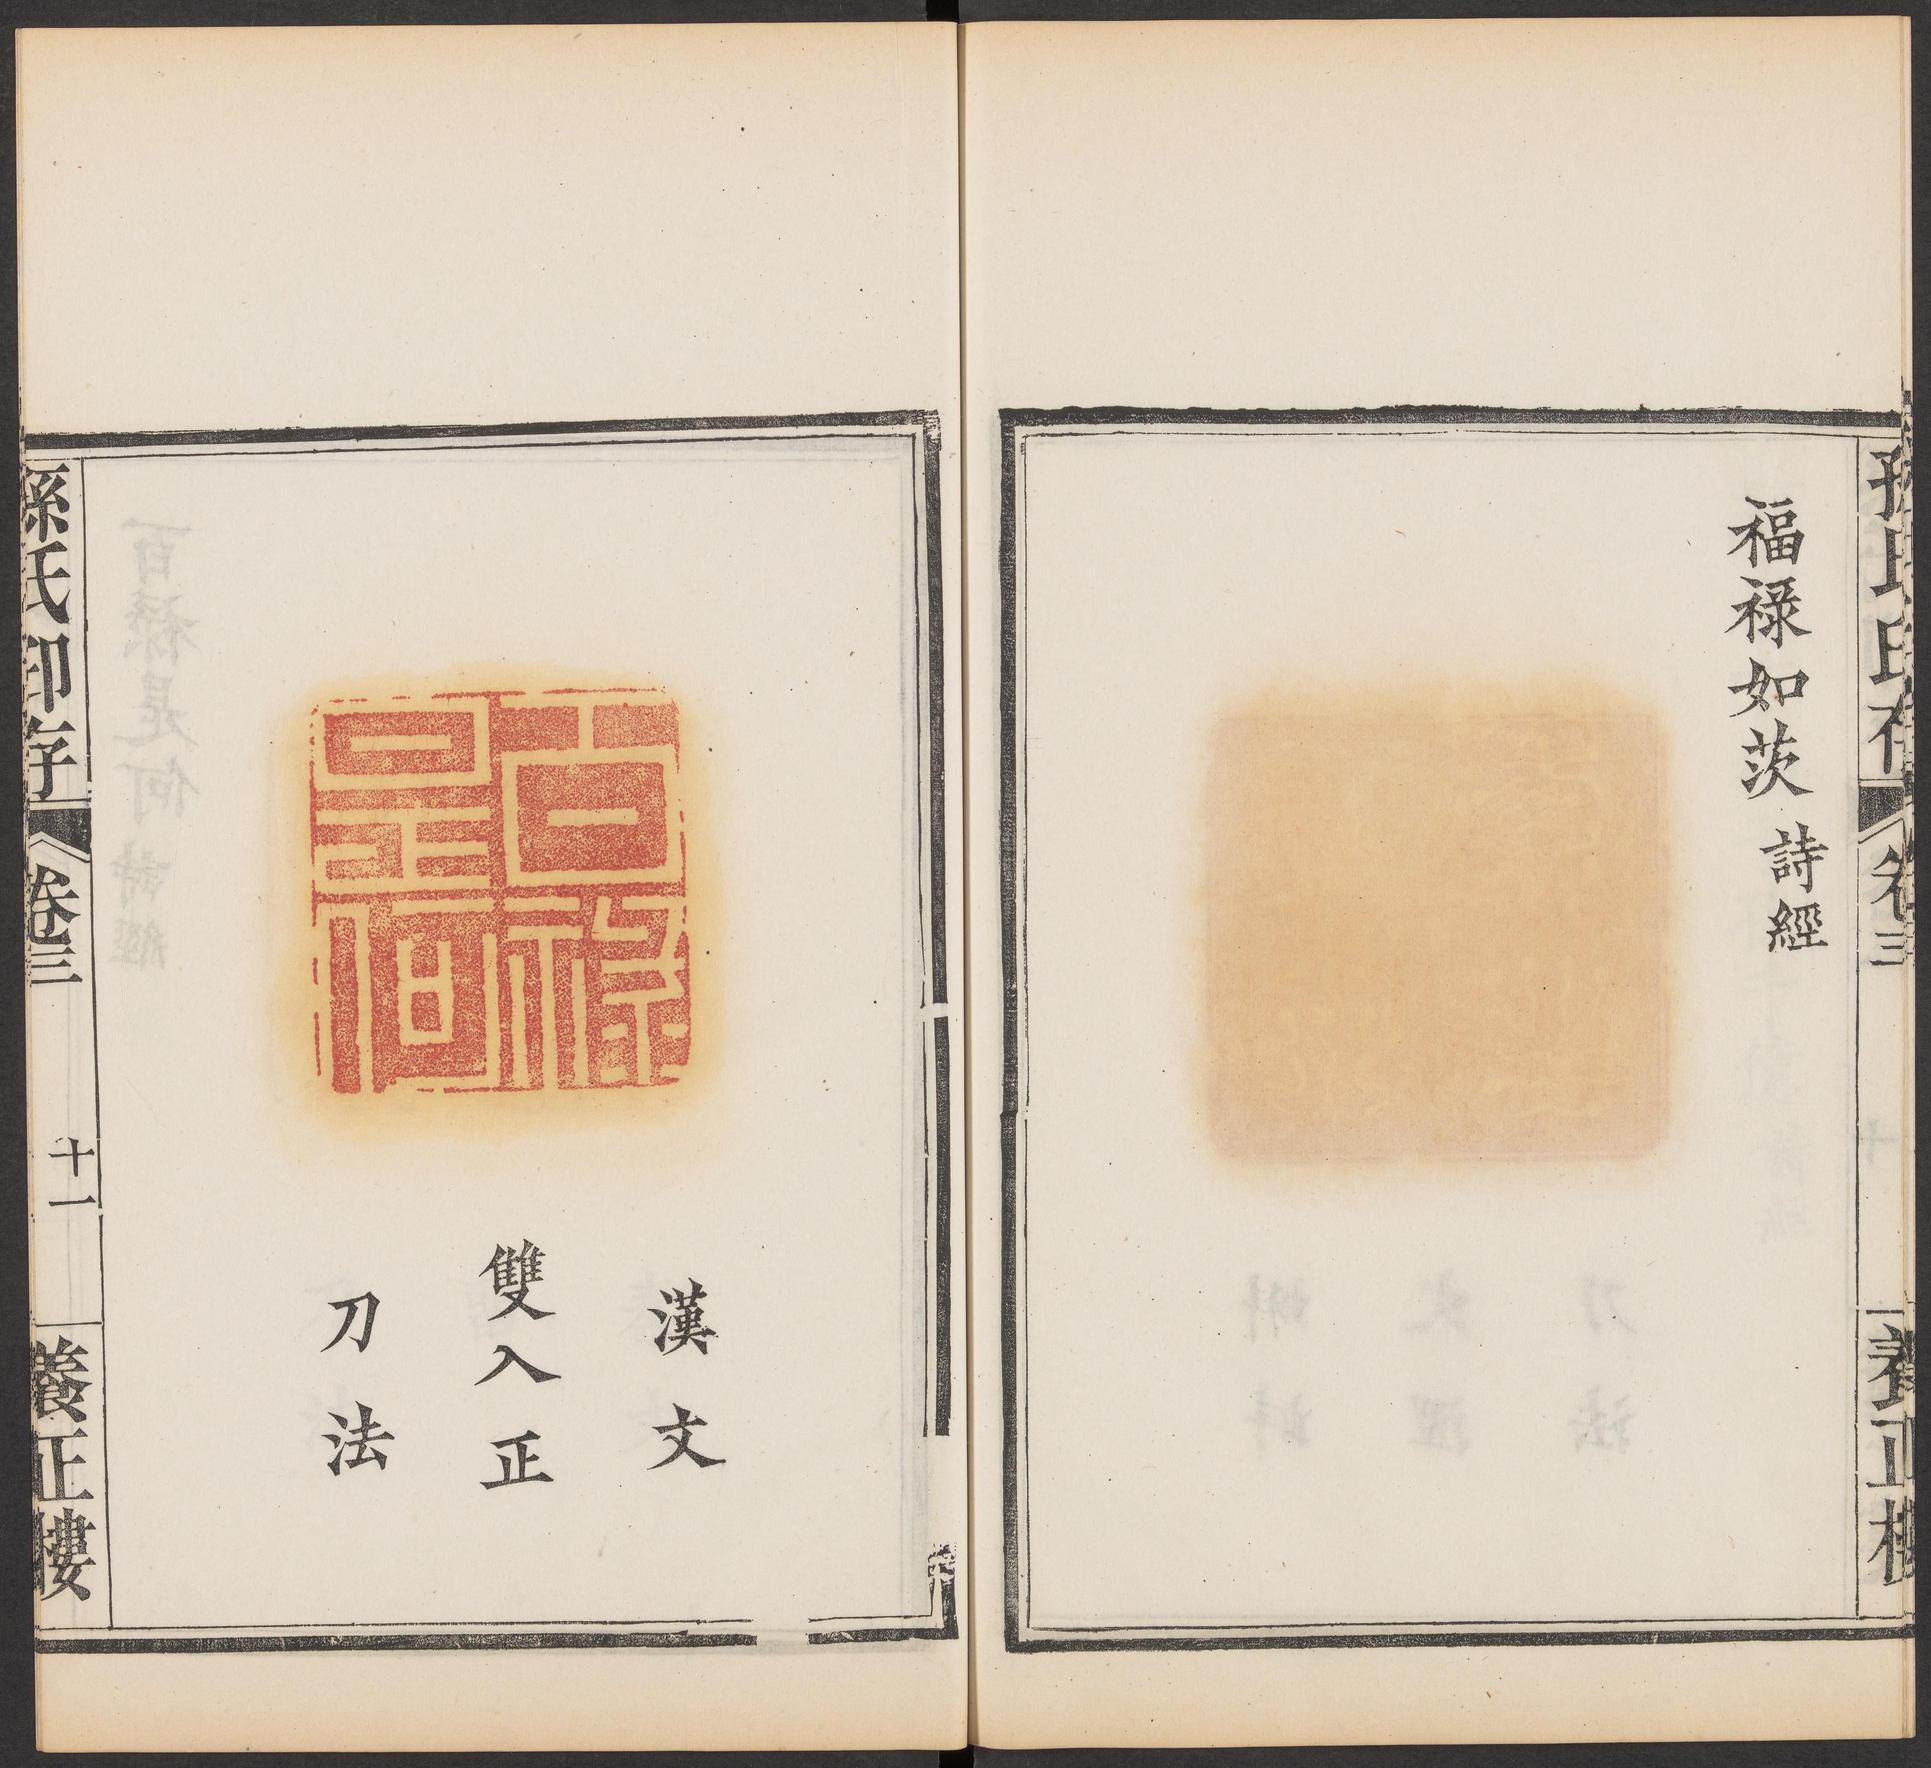 孫氏印存 卷三 養正樓
福祿如茨 詩經
百祿是何
漢文
雙入正
刀法
孫氏印存 卷三 十一 養正樓
百祿是何 詩經